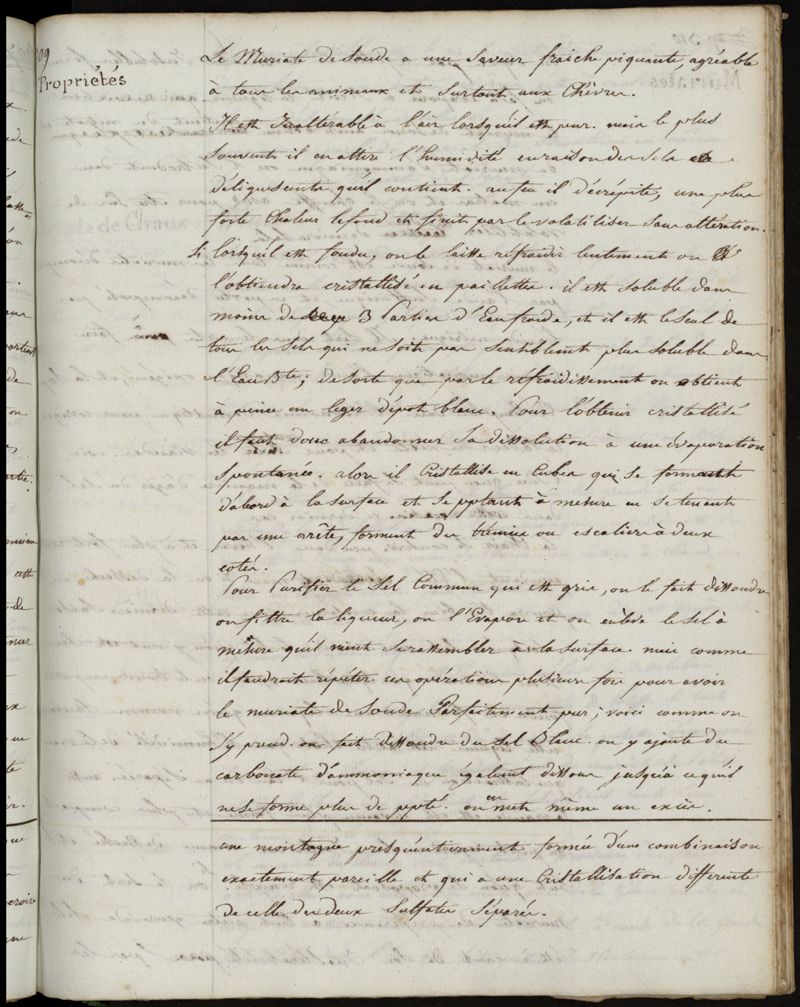 09
Propriétés
Le Muriate de Soude a une Saveur fraîche piquante, agréable
à tous les animaux et Surtout aux Chèvres.
Il est Inaltérable à l'air lorsqu'il est pur. mais le plus
Souvent il en attire l'humidité en raison des sels
déliquescents qu'il contient. au feu il décrépite, une plus
forte Chaleur le fond et finit par le volatiliser Sans altération.
Si lorsqu'il est fondu, on le laisse réfroidir lentement on
l'obtiendra cristallisé en paillettes. il est soluble dans
moins de 3 Parties d'Eau froide, et il est le Seul de
tous les Sels qui ne soit pas sensiblement plus soluble dans
l'Eau Bte; de sorte que par le réfroidissement on obtient
à peine un leger dépot blanc. Pour l'obtenir cristallisé
il faut donc abandonner Sa dissolution à une évaporation
Spontanée. alors il Cristallise en Cubes qui se formant
d'abord à la surface et se pptant à mesure en se tenant
par une arrête, forment des trémies ou escaliers à deux
cotés.
Pour Purifier le Sel Commun qui est gris, on le fait dissoudre
on filtre la liqueur, on l'Evapore et on enlève le sel à
mesure qu'il vient se rassembler à la surface. mais comme
il faudrait répéter ces opérations plusieurs fois pour avoir
le muriate de Soude Parfaitement pur; voici comme on
s'y prend. on fait dissoudre du Sel Blanc. on y ajoute du
carbonate d'ammoniaque également dissous jusqu'à ce qu'il
ne se forme plus de ppté. on en mets même un excès.
une montagne presqu'entièrement formée d'une combinaison
exactement pareille et qui a une Cristallisation différente
de celle des deux Sulfates Séparés.